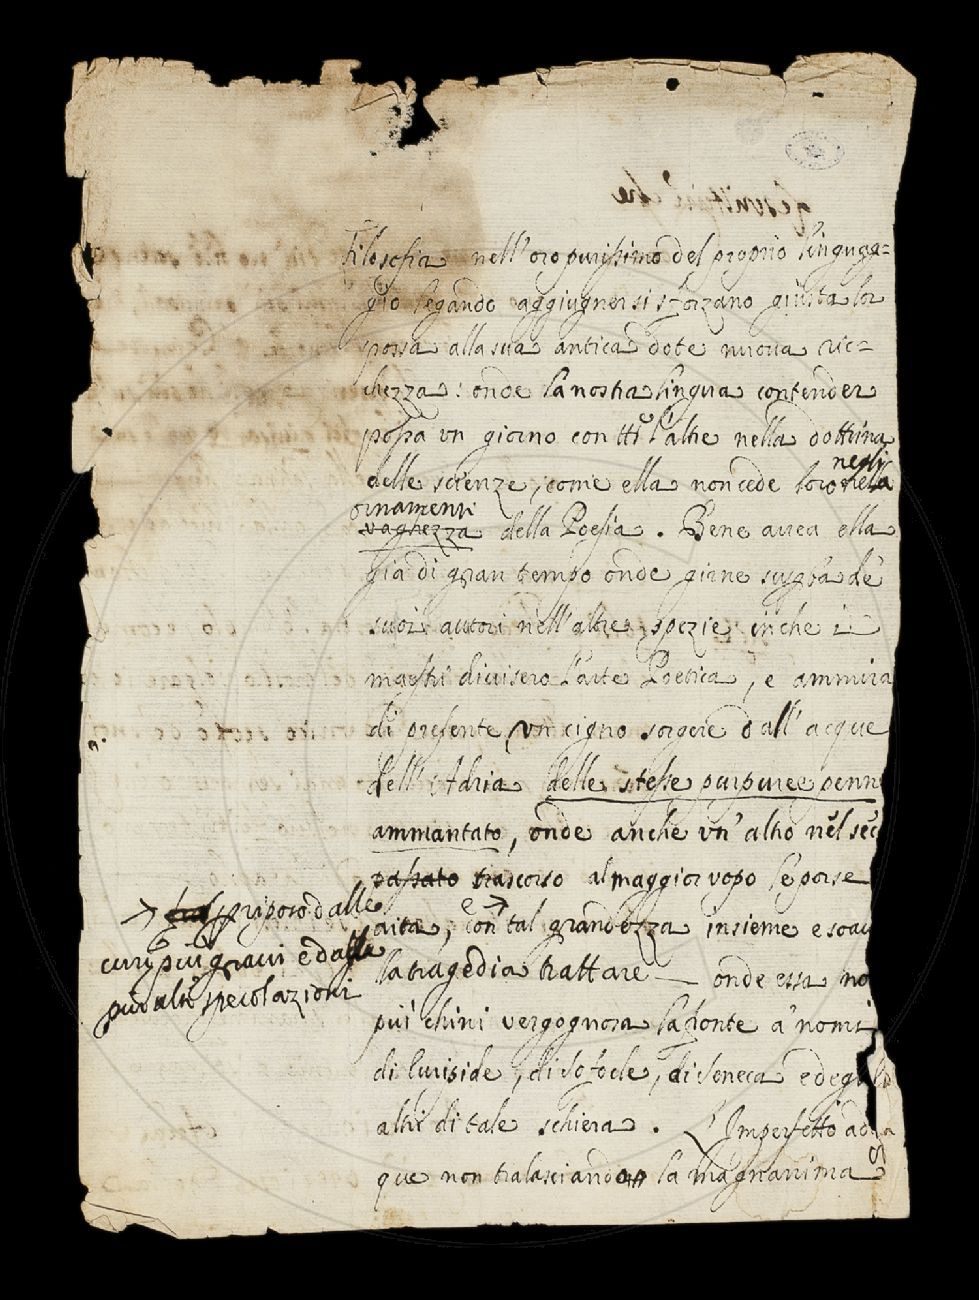 Filosofia nell'oro purissimo del proprio lingugg=
gio legando aggiugner si sforzano giusta lor
possa alla sua antica dote nuova ric=
chezza: onde la nostra lingua contender
possa un giorno con tti l'altre nella dottrina
delle scienze, come ella non cede loro nella
negli
ornamenti
vaghezza della Poesia. Bene avea ella
già di gran tempo onde girne de'
suoi autori nell'altre spezie in che i
maestri divisero l'arte Poetica, e ammira
di presente un cigno sorgere dall'acque
dell'Adria delle stesse purpuree penn
ammantato, onde anche un'altro nel sec
passato trascorso al maggior uopo le porse
aita, e con tal grandezza insieme e soav
la tragedia trattare onde essa no
più chini vergognosa la fronte a' nomi
di Euriside, di Sofocle, di Seneca e degli
altri di tale schiera. L'Imperfetto adun
que non tralasciando la magnanima
priposo dalle
cure più gravi e dalle
più alte specolazioni